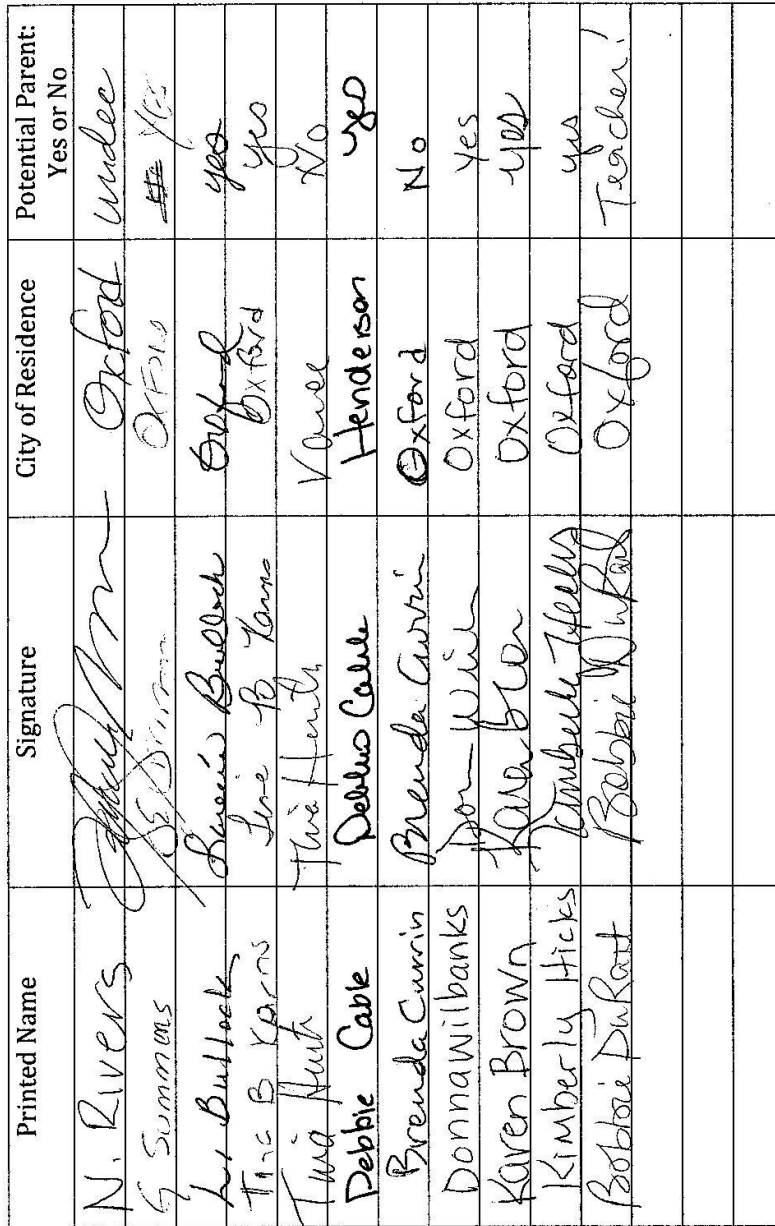 Printed Name Signature City of Residence Potential Parent:
Yes or No
N. Rivers Oxford undec
G Summons Oxford Yes
L. Bullock Bullock Oxford yes
Tina B Karns Oxford yes
Vance No
Debbie Cable Debbie Cable Henderson yes
Brenda Currin Brenda Currin Oxford No
Donna Wilbanks Oxford Yes
Karen Brown Oxford yes
Kimberly Hicks Kimberly Hicks Oxford yes
Bobbie Bobbie Oxford Teacher!